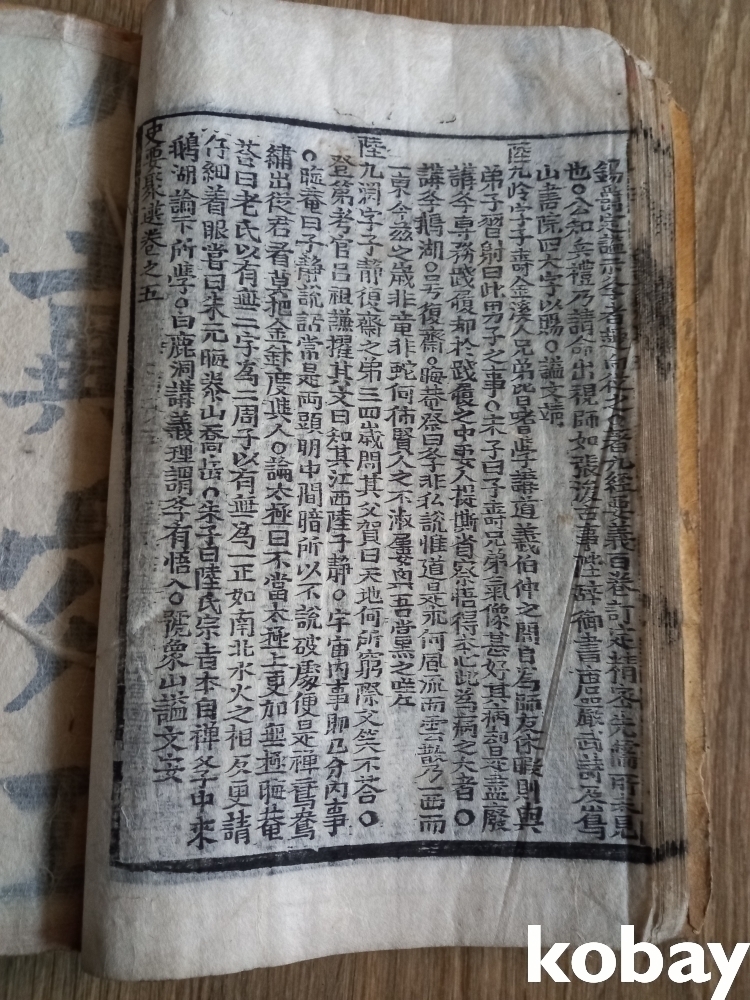 也○公知兵禮乃請命出視師如張浚古事陛辭御書唐嚴武詩及鶴
山書院四大字以賜○謚文靖
陸九齡字子壽金溪人兄弟皆嗜學講道義伯仲之間自為師友休暇則與
弟子習射曰此男子之事○朱子曰子壽兄弟氣像甚好其病却是盡廢
講學專務踐履却於踐履之中要人提撕省察悟得本心此為病之大者○
講學鵝湖○号復齋○晦菴祭曰學非私說惟道是求何風流而雲散乃一西而
一東今茲之歲非竜非蛇何
陸九淵字子静復齋之弟三四歲問其父賀曰天地何所窮際父笑不答○
登第考官呂祖謙擢其文曰知其江西陸子靜○宇宙內事即己分內事
○晦菴曰子靜說話常是兩頭明中間暗所以不說破處便是禪鴛鴦
繡出從君看莫把金針度與人○論太極曰不當太極上更加無極晦菴
答曰老氏以有無二字為二周子以有無為一正如南北水火之相反更請
仔細着眼嘗曰朱元晦泰山喬岳○朱子曰陸氏宗旨本自禪學中來
鵝湖論下所學○白鹿洞講義理謂各有悟入○號象山謚文安
史要聚選卷之五
kobay